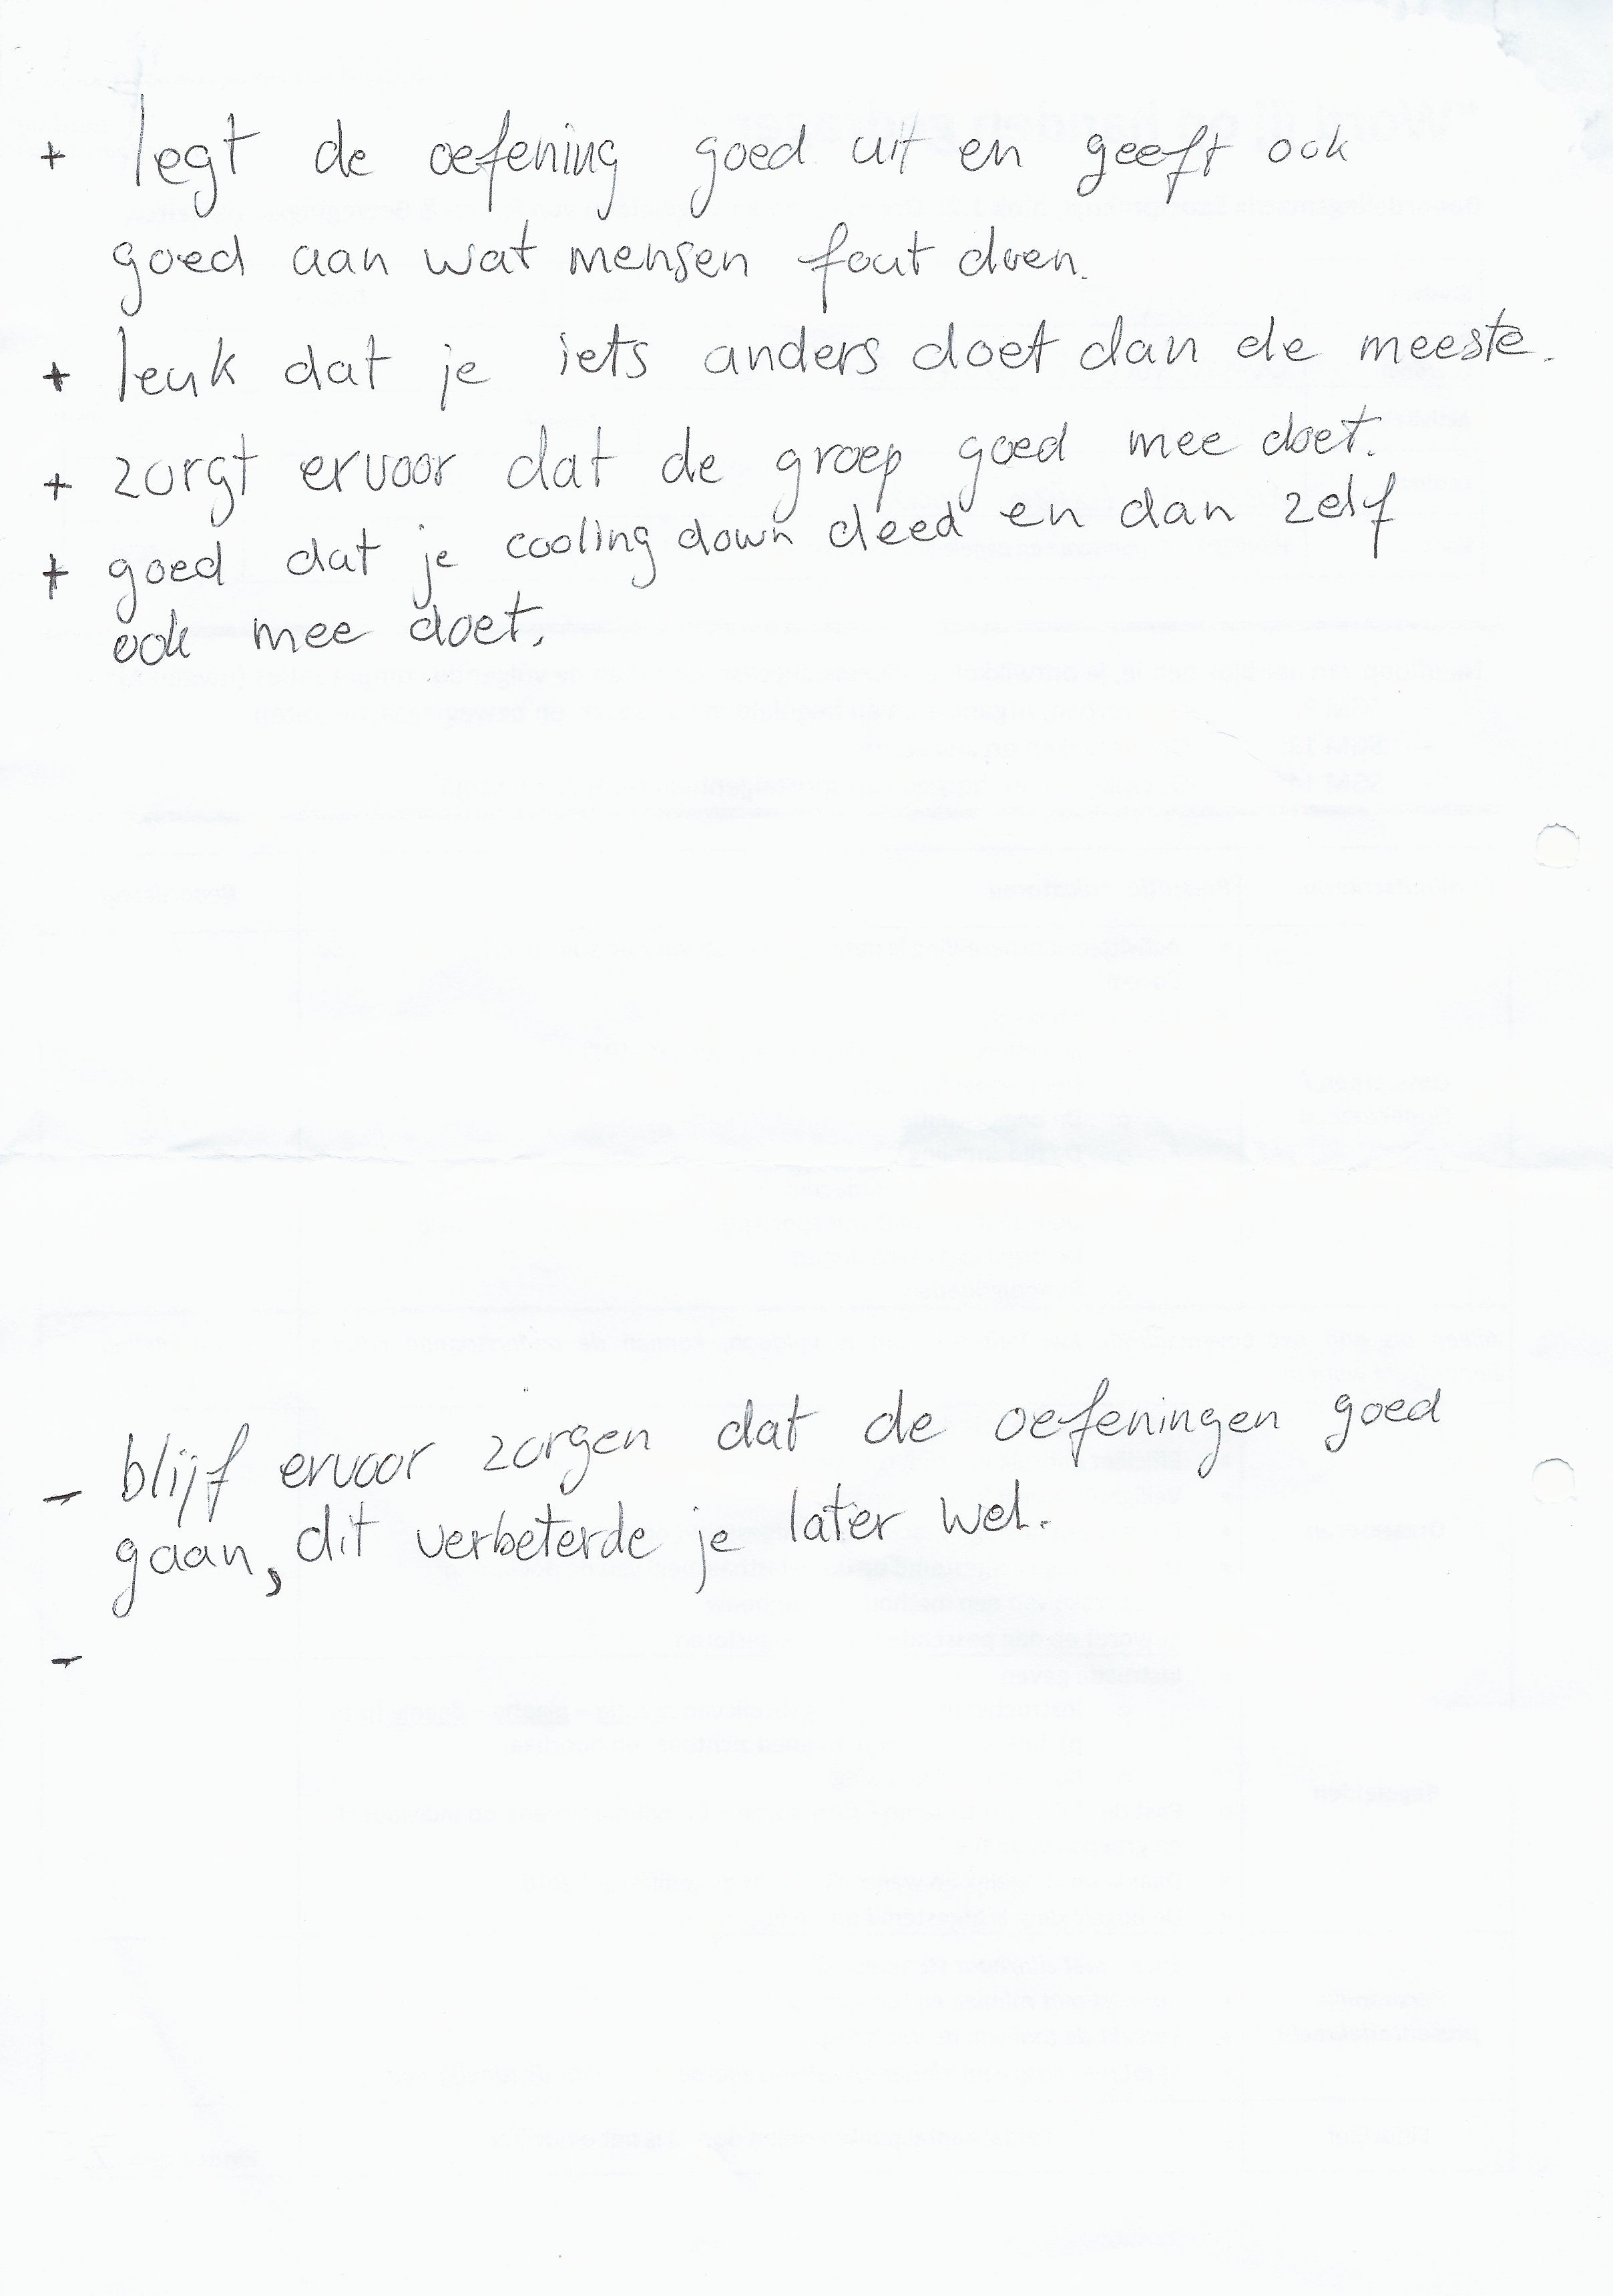 + legt de oefening goed uit en geeft ook
goed aan wat mensen fout doen.
+ leuk dat je iets anders doet dan de meeste.
+ zorgt ervoor dat de groep goed mee doet.
+ goed dat je cooling down deed en dan zelf
ook mee doet.
- blijf ervoor zorgen dat de oefeningen goed
gaan, dit verbeterde je later wel.
-